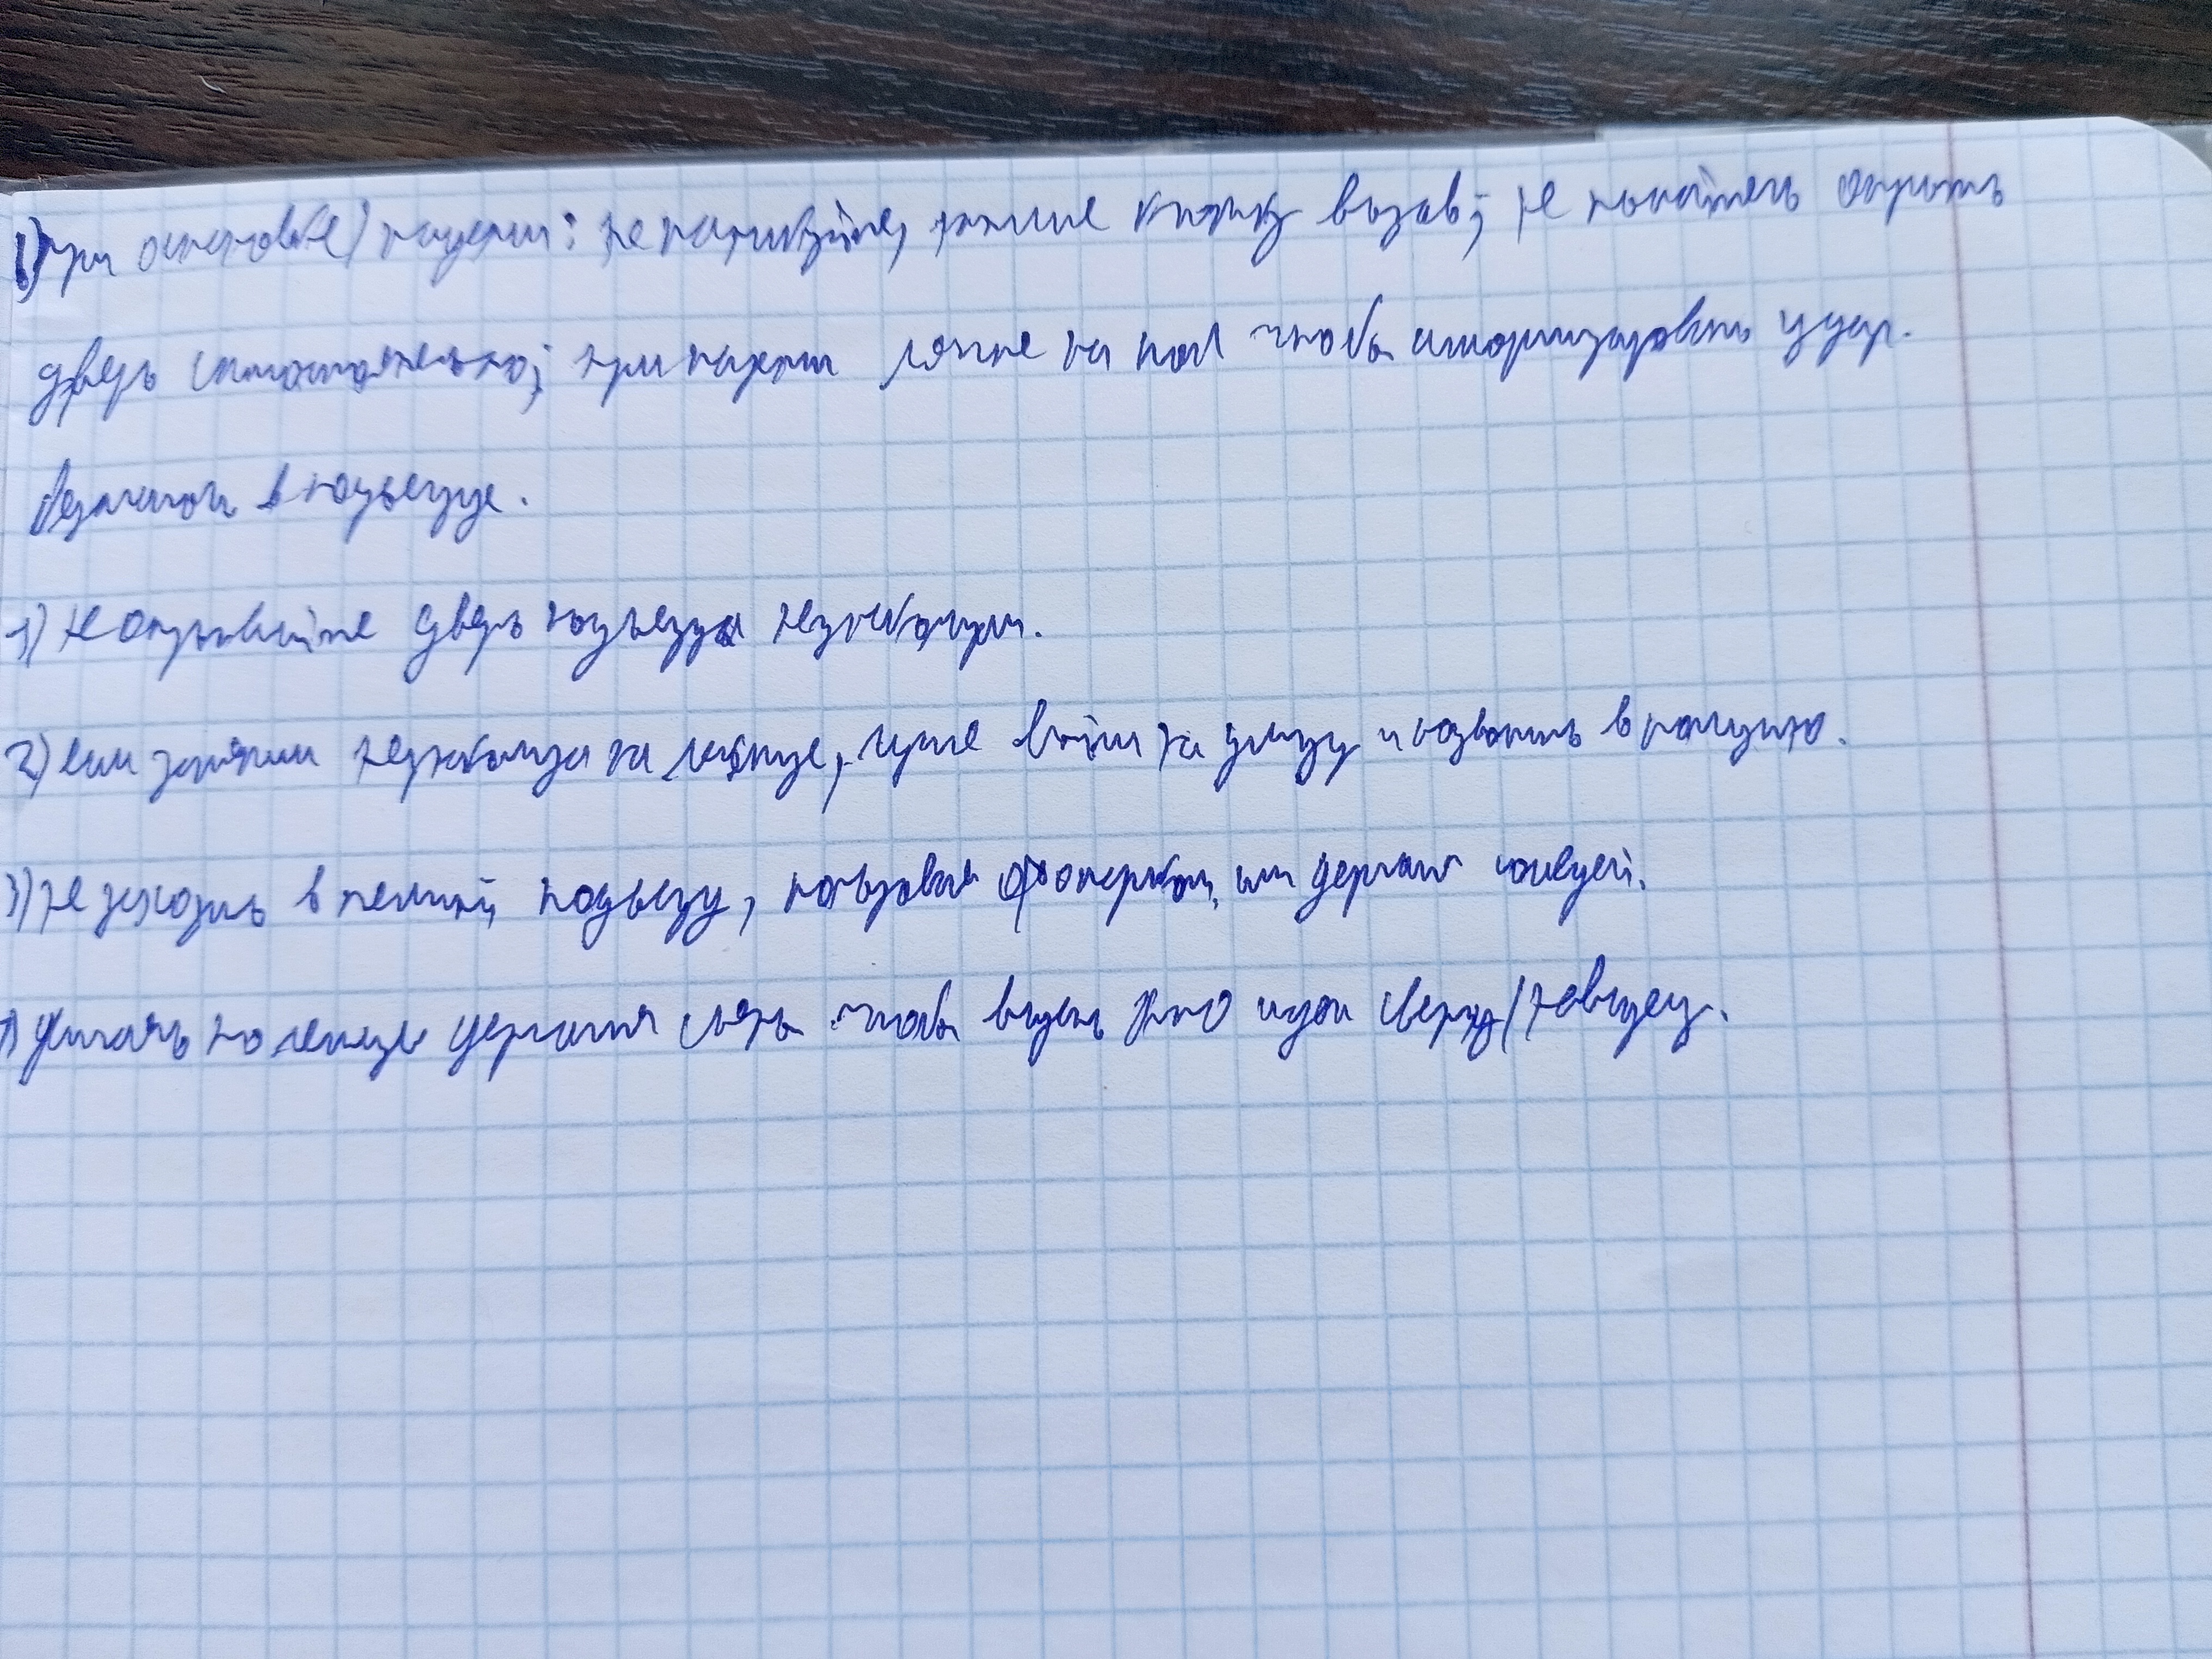 1) при остановке / падении: не паникуйте, жмите кнопку вызов; не пытайтесь открыть
дверь самостоятельно; при падении лягте на пол чтобы амортизировать удар.
Безопасность в подъезде.
1) Не открывайте дверь подъезда незнакомцам.
2) если заметили незнакомца на лестнице, лучше выйти на улицу и позвонить в полицию.
3) Не заходить в темный подъезд, пользоваться фонариком, или соседей.
по лестнице держаться чтобы видеть кто идёт сверху/